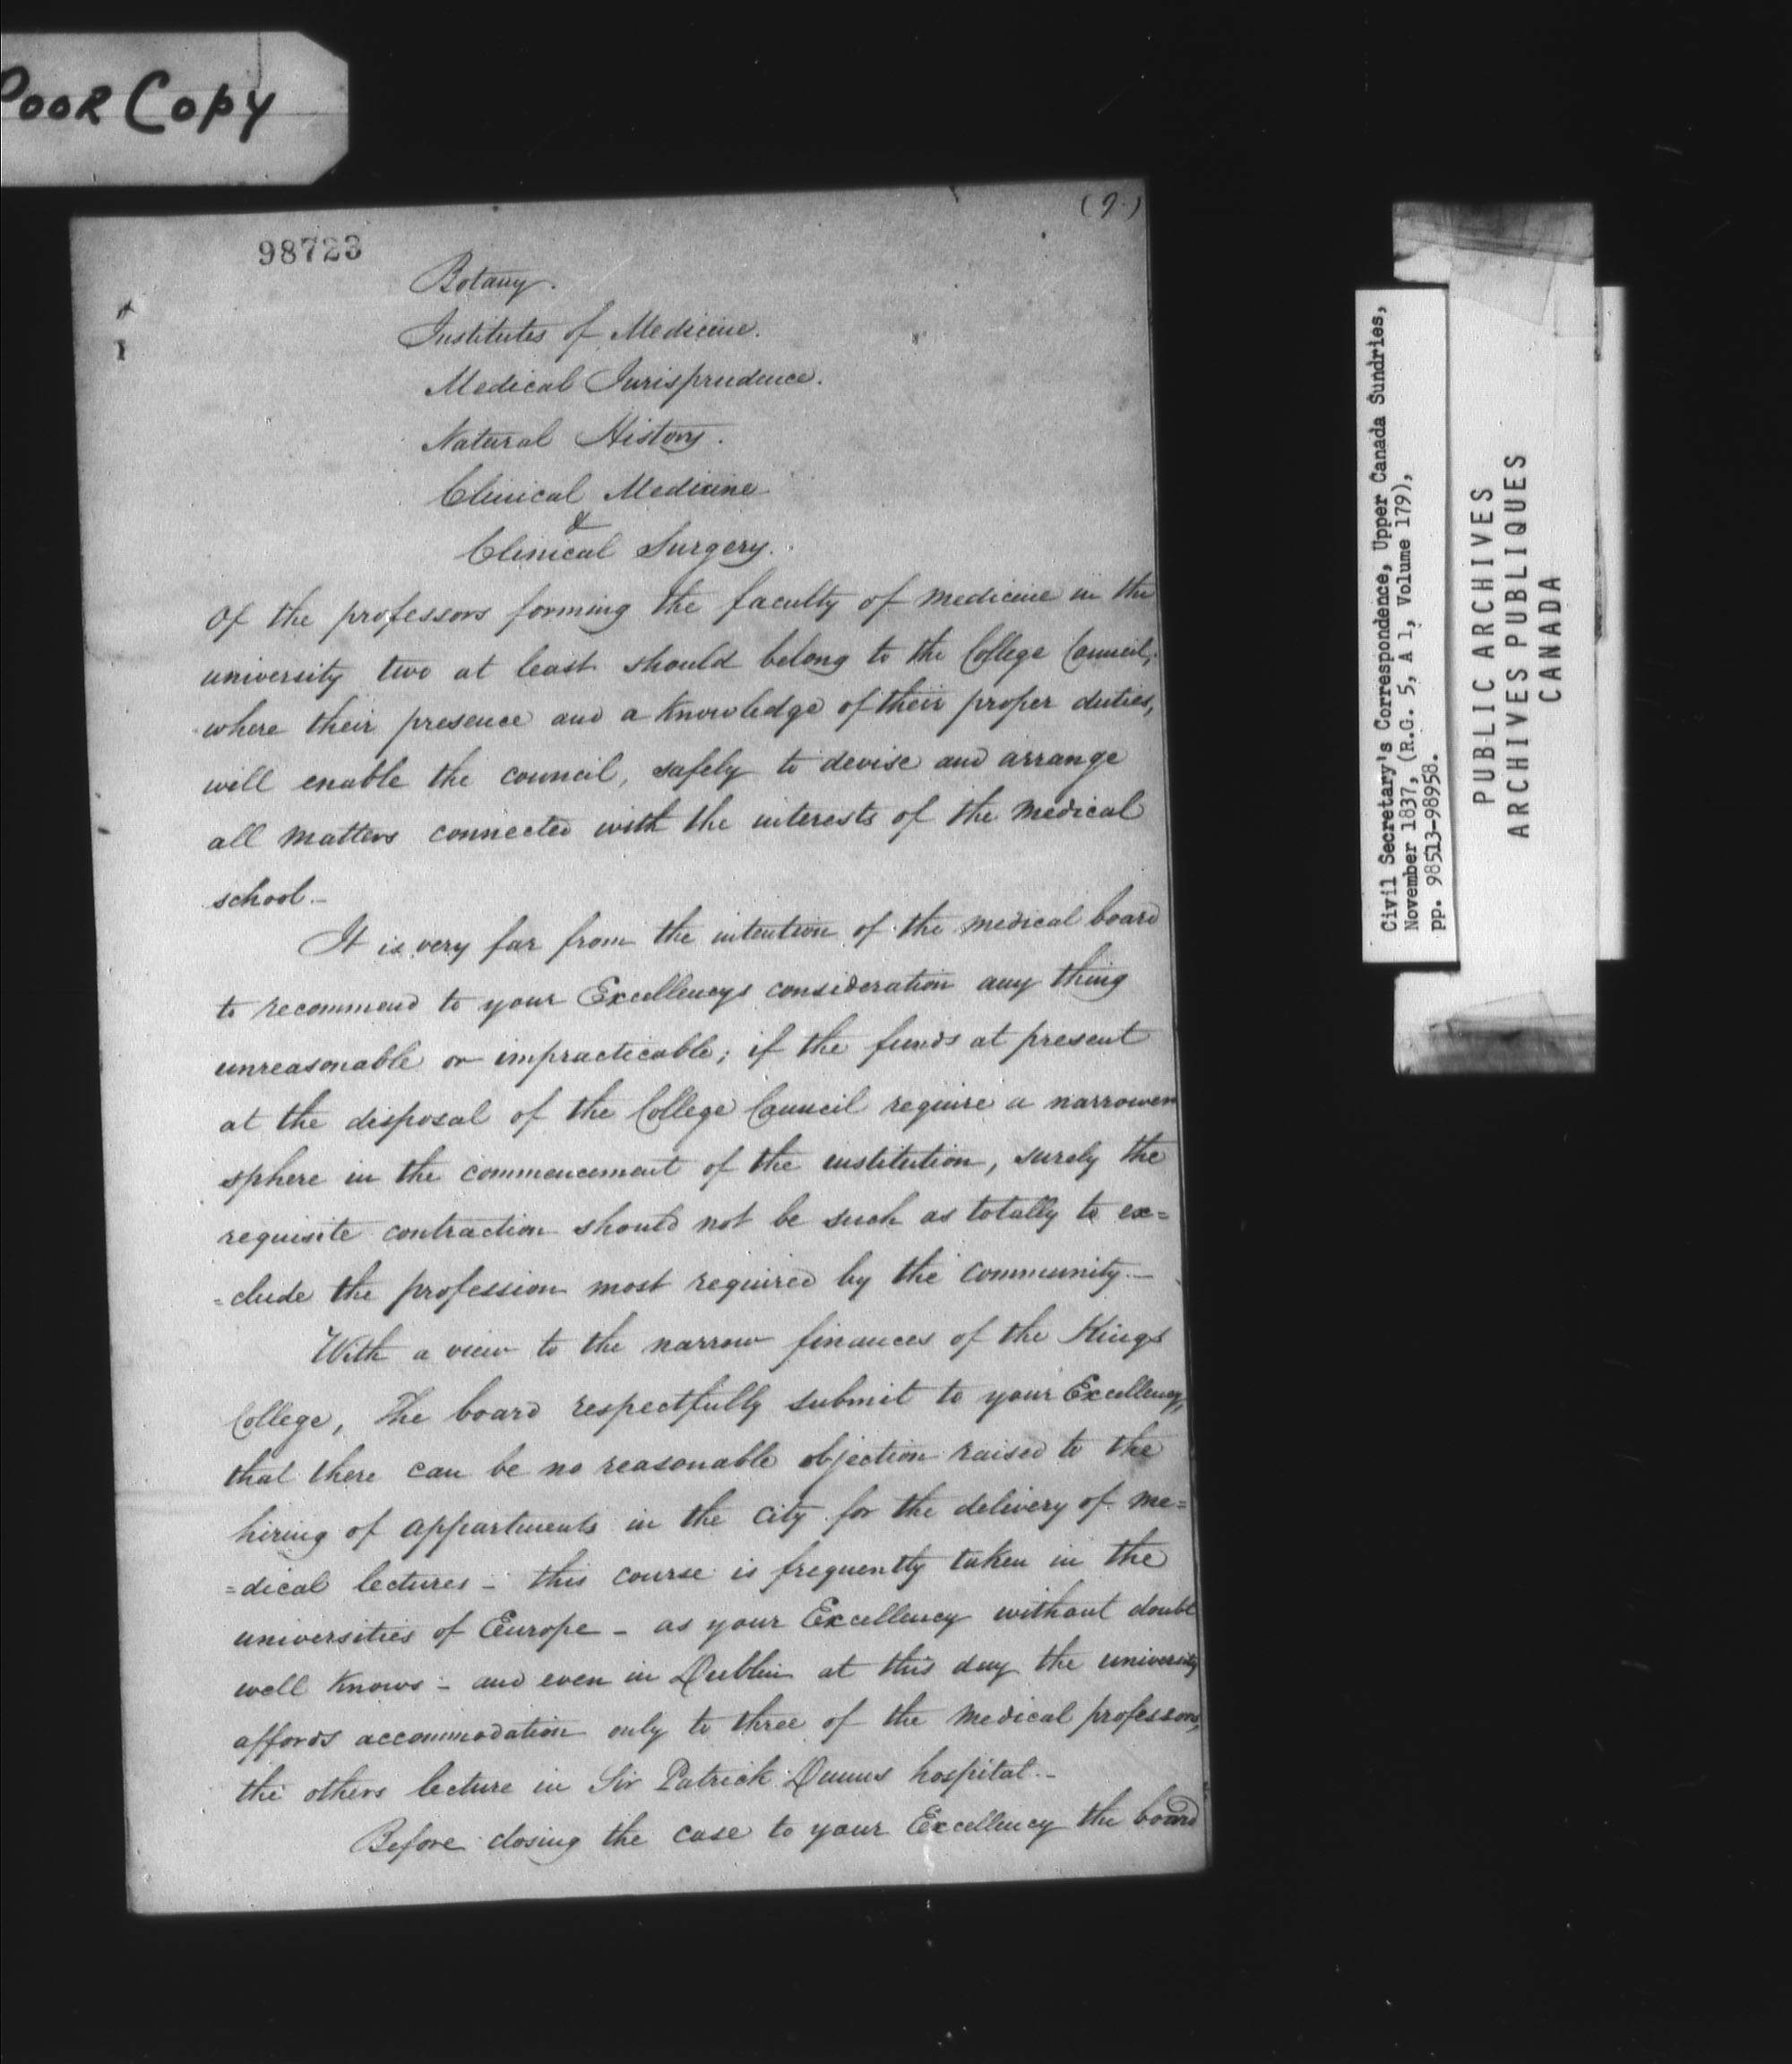 Poor Copy
(9.)
98723
Botany.
Institutes of Medicine.
Medical Jurisprudence.
Natural History.
Clinical Medicine
&
Clinical Surgery.
Of the professors forming the faculty of medicine in the
university two at least should belong to the College Council,
where their presence and a knowledge of their proper duties,
will enable the council, safely to devise and arrange
all matters connected with the interests of the medical
school.-
It is very far from the intention of the medical board
to recommend to your Excellencys consideration any thing
unreasonable or impracticable; if the funds at present
at the disposal of the College Council require a narrower
sphere in the commencement of the institution, surely the
requisite contraction should not be such as totally to ex=
=clude the profession most required by the community.-
With a view to the narrow finances of the Kings
College, The board respectfully submit to your Excellency,
that there can be no reasonable objection raised to the
hiring of appartments in the city for the delivery of me=
=dical lectures - this course is frequently taken in the
universities of Europe - as your Excellency without doubt
well knows - and even in Dublin at this day the university
affords accommodation only to three of the medical professors,
the others lecture in Sir Patrick Dunns hospital.-
Before closing the case to your Excellency the board
Civil Secretary's Correspondence, Upper Canada Sundries,
November 1837, (R.G. 5, A 1, Volume 179),
pp. 98513-98958.
PUBLIC ARCHIVES
ARCHIVES PUBLIQUES
CANADA